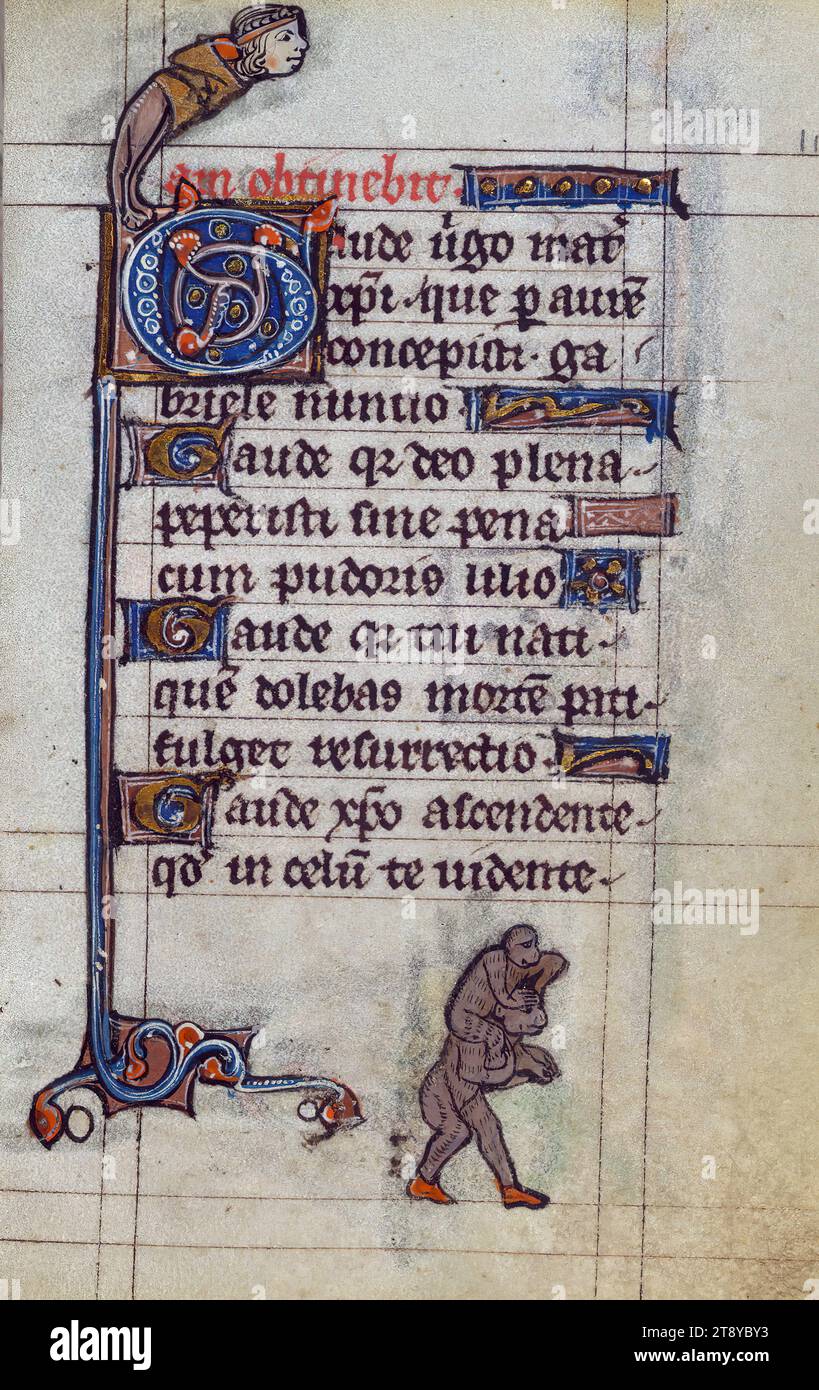 am obtinebit.
Gaude ũgo matʳ
xp̃i. que ꝑ aurẽ
concepisti. ga
briele nuncio.
Gaude qꝛ deo plena
peperisti sine pena
cum pudoris lilio
Gaude qꝛ tui nati
quẽ dolebas mortẽ pati
fulget resurrectio
Gaude xp̃o ascendente
qd̾ in celũ te uidente
alamy
Image ID: 2T8YBY3
www.alamy.com